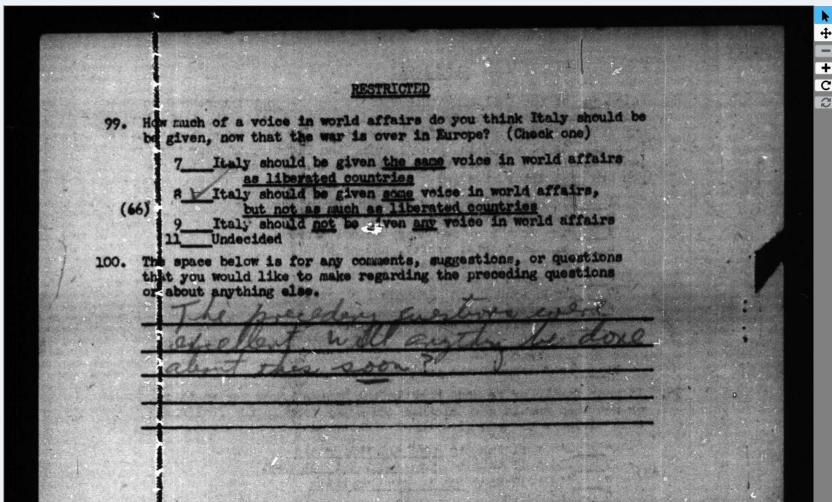 RESTRICTED
99. How much of a voice in world affairs do you think Italy should be
be given, now that the war is over in Europe? (Check one)
7___Italy should be given the same voice in world affairs
as liberated countries
8___Italy should be given some voice in world affairs,
(66) but not as much as liberated countries
9___Italy should not be given any voice in world affairs
11___Undecided
100. The space below is for any comments, suggestions, or questions
that you would like to make regarding the preceding questions
or about anything else.
The preceding questions were
excellent. Will anything be done
about this soon?